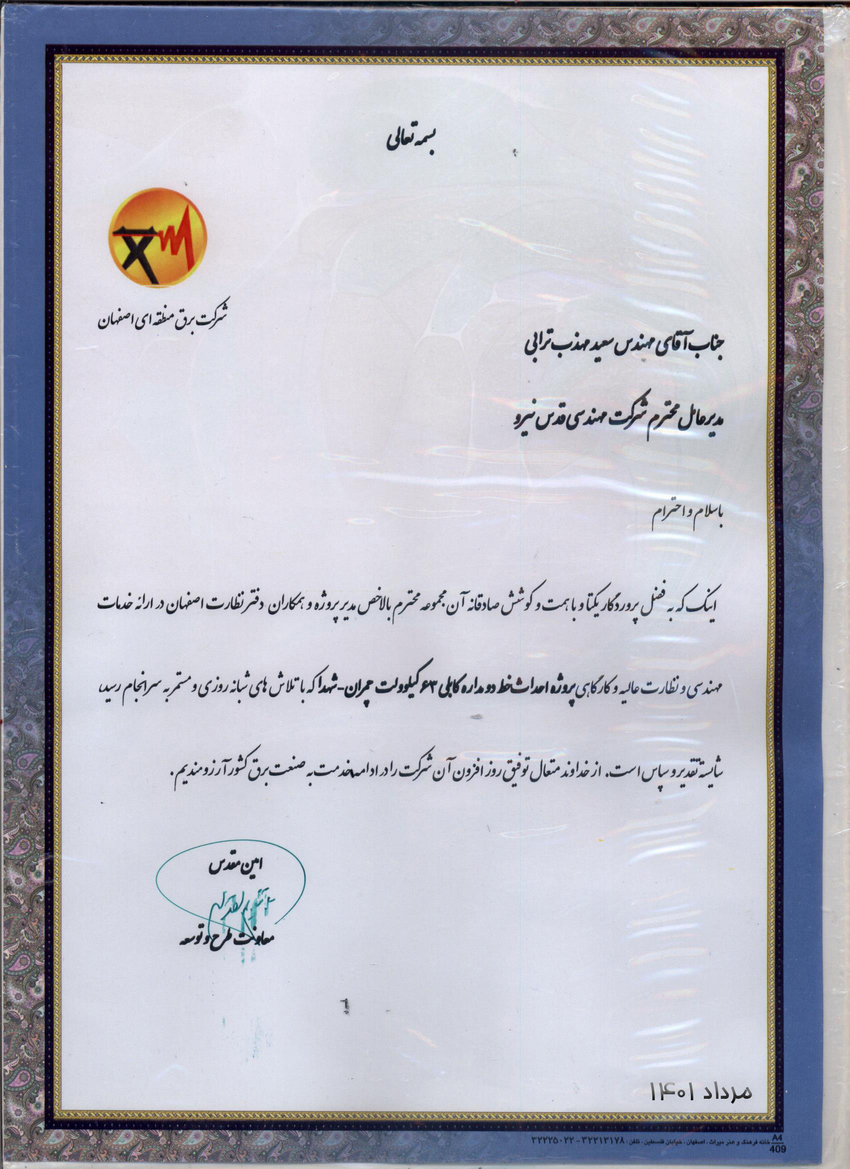 بسمه تعالی
شرکت برق منطقه ای اصفهان
جناب آقای مهندس سعید مهذب ترابی
مدیرعامل محترم شرکت مهندسی قدس نیرو
باسلام و احترام
اینک که به فضل پروردگار یکتا و با همت و کوشش صادقانه آن مجموعه محترم بالاخص مدیر پروژه و همکاران دفتر نظارت اصفهان در ارائه خدمات
مهندسی و نظارت عالیه و کارگاهی پروژه احداث خط دو مداره کابلی ۶۳ کیلوولت چمران-شهدا که با تلاش های شبانه روزی و مستمر به سرانجام رسید،
شایسته تقدیر و سپاس است. از خداوند متعال توفیق روز افزون آن شرکت را در ادامه خدمت به صنعت برق کشور آرزومندیم.
امین مقدس
معاونت طرح و توسعه
مرداد ۱۴۰۱
خانه فرهنگ و هنر میراث - اصفهان - خیابان فلسطین - تلفن: ۳۲۲۱۳۱۷۸ - ۳۲۲۲۵۰۲۲
A4
409